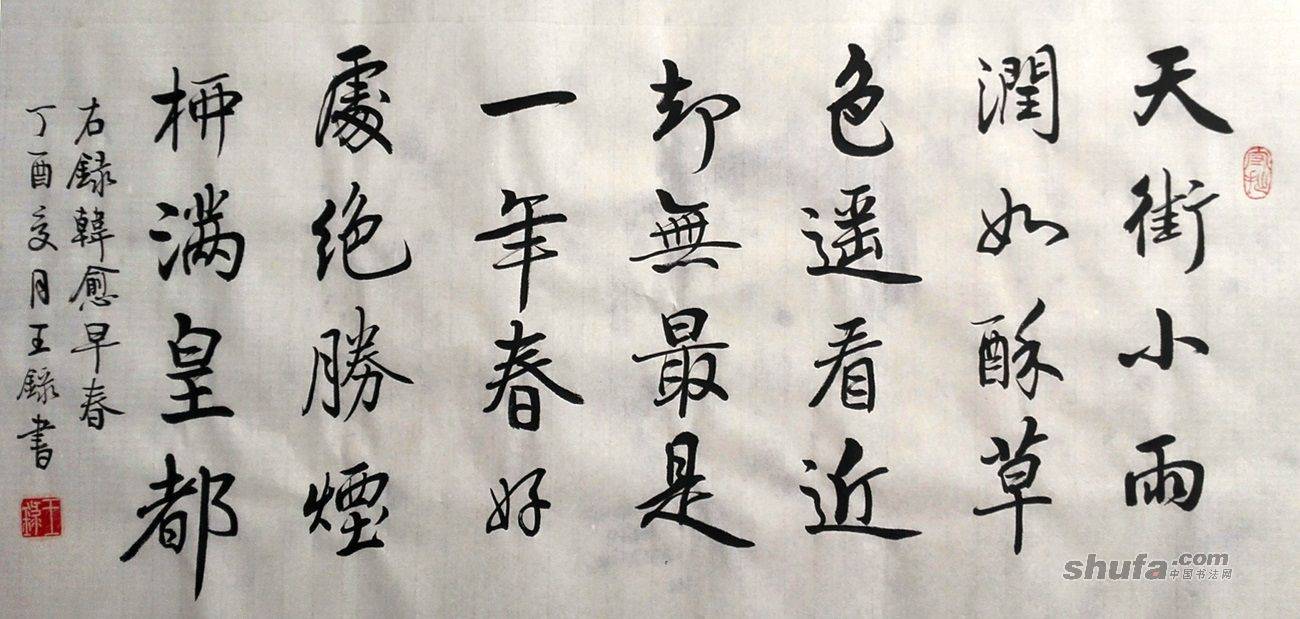 天街小雨
潤如酥草
色遥看近
却無最是
一年春好
處绝勝煙
柳满皇都
右録韓愈早春
丁酉亥月王録書
shufa.com
中国书法网